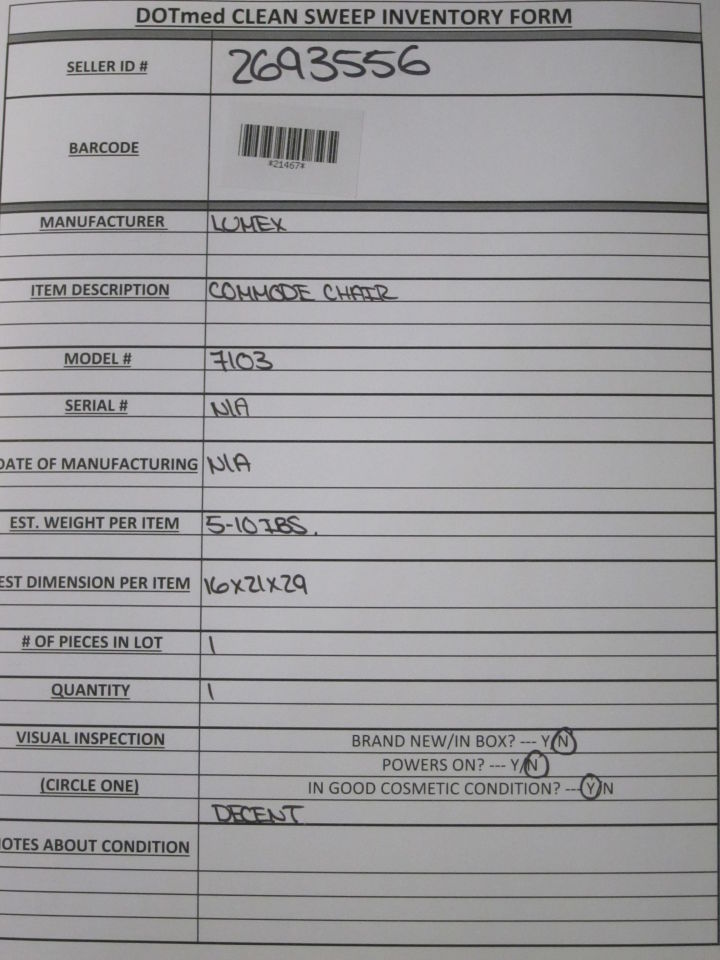 DOTmed CLEAN SWEEP INVENTORY FORM
SELLER ID # 2693556
BARCODE
*21467*
MANUFACTURER LUMEX
ITEM DESCRIPTION COMMODE CHAIR
MODEL # 7103
SERIAL # N/A
DATE OF MANUFACTURING N/A
EST. WEIGHT PER ITEM 5-10 IBS.
EST DIMENSION PER ITEM 16X21X29
# OF PIECES IN LOT 1
QUANTITY 1
VISUAL INSPECTION BRAND NEW/IN BOX? --- Y/N
POWERS ON? --- Y/N
(CIRCLE ONE) IN GOOD COSMETIC CONDITION? --- Y/N
DECENT
NOTES ABOUT CONDITION